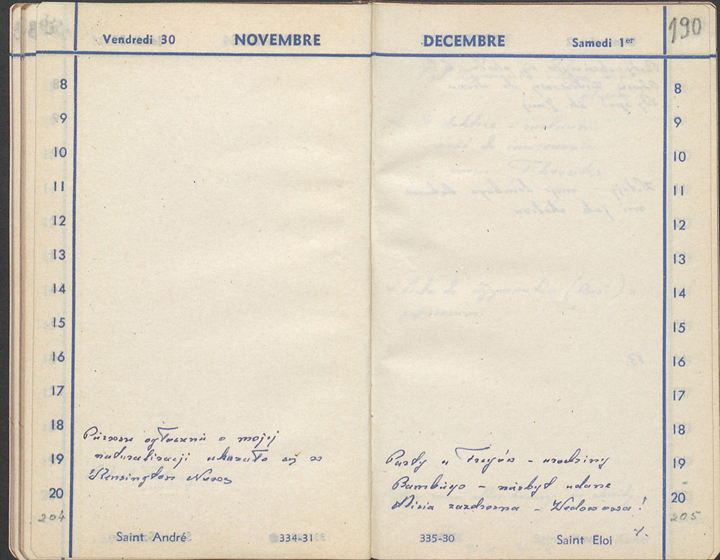 Vendredi 30 NOVEMBRE
8
9
10
11
12
13
14
15
16
17
18
19
20
Pierwsze ogłoszenie o mojej
naturalizacji ukazało się w
Kensington News
204
Saint André 334-31
190
DECEMBRE Samedi 1er
8
9
10
11
12
13
14
15
16
17
18
19
20
Party u - urodziny
- niezbyt udane
Misia zazdrosna - !
205
335-30 Saint Eloi